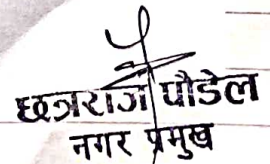 छत्रराज पौडेल
नगर प्रमुख